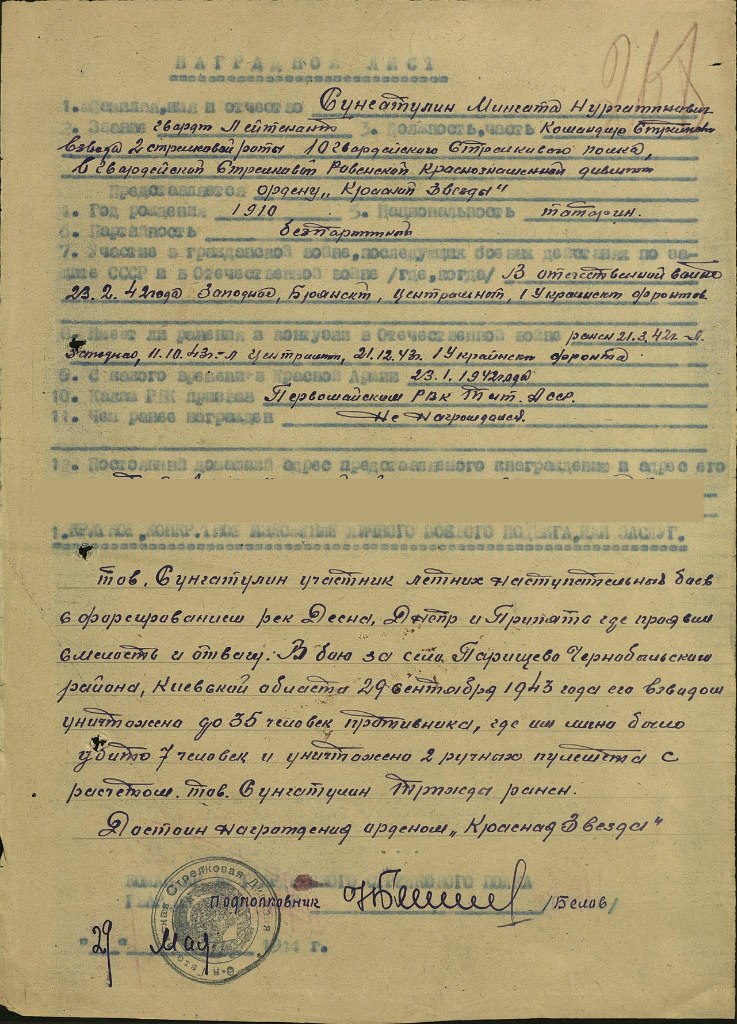 НАГРАДНОЙ ЛИСТ
1. Фамилия, имя и отчество Сунгатулин Мингата Нургатинович
2. Звание гвардии Лейтенант 3. Должность, часть Командир Стрелков
взвода 2 стрелковой роты 10 Гвардейского Стрелкового полка,
6 Гвардейской Стрелковой Ровенской Краснознаменной дивизии
Представляется ордену „Красной Звезды“
4. Год рождения 1910 5. Национальность татарин.
6. Партийность безпартийный
7. Участие в гражданской войне, последующих боевых действиях по за-
щите СССР и в Отечественной войне /где, когда/ В отечественной войне
23.2.42 года Западна, Брянск, Центральной, 1 Украинск фронтов.
8. Имеет ли ранения и контузии в Отечественной войне ранен 21.3.42г-Л.
Западнаю, 11.10.43г.-Л Централит, 21.12.43г. 1 Украинск фронта
9. С какого времени в Красной Армии 23.1.1942 года
10. Каким РВК призван Первомайским РВК Тат. АССР.
11. Чем ранее награжден Не награждался.
12. Постоянный домашний адрес представляемого к награждению и адрес его
1. КРАТКОЕ, КОНКРЕТНОЕ ИЗЛОЖЕНИЕ ЛИЧНОГО БОЕВОГО ПОДВИГА, ИЛИ ЗАСЛУГ.
тов. Сунгатулин участник летних наступательных боев
с форсированием рек Десна, Днепр и Припять где проявил
смелость и отвагу. В бою за село Парищево Чернобыльского
района, Киевской области 29 сентября 1943 года его взводом
уничтожено до 35 человек противника, где им лично было
убито 7 человек и уничтожено 2 ручных пулемета с
расчетом. тов. Сунгатулин трижды ранен.
Достоин награждения орденом „Красная Звезда“
ПОЛКА
Подполковник /Белов/
"29" Мая 1944 г.
Стрелковая Дивизия